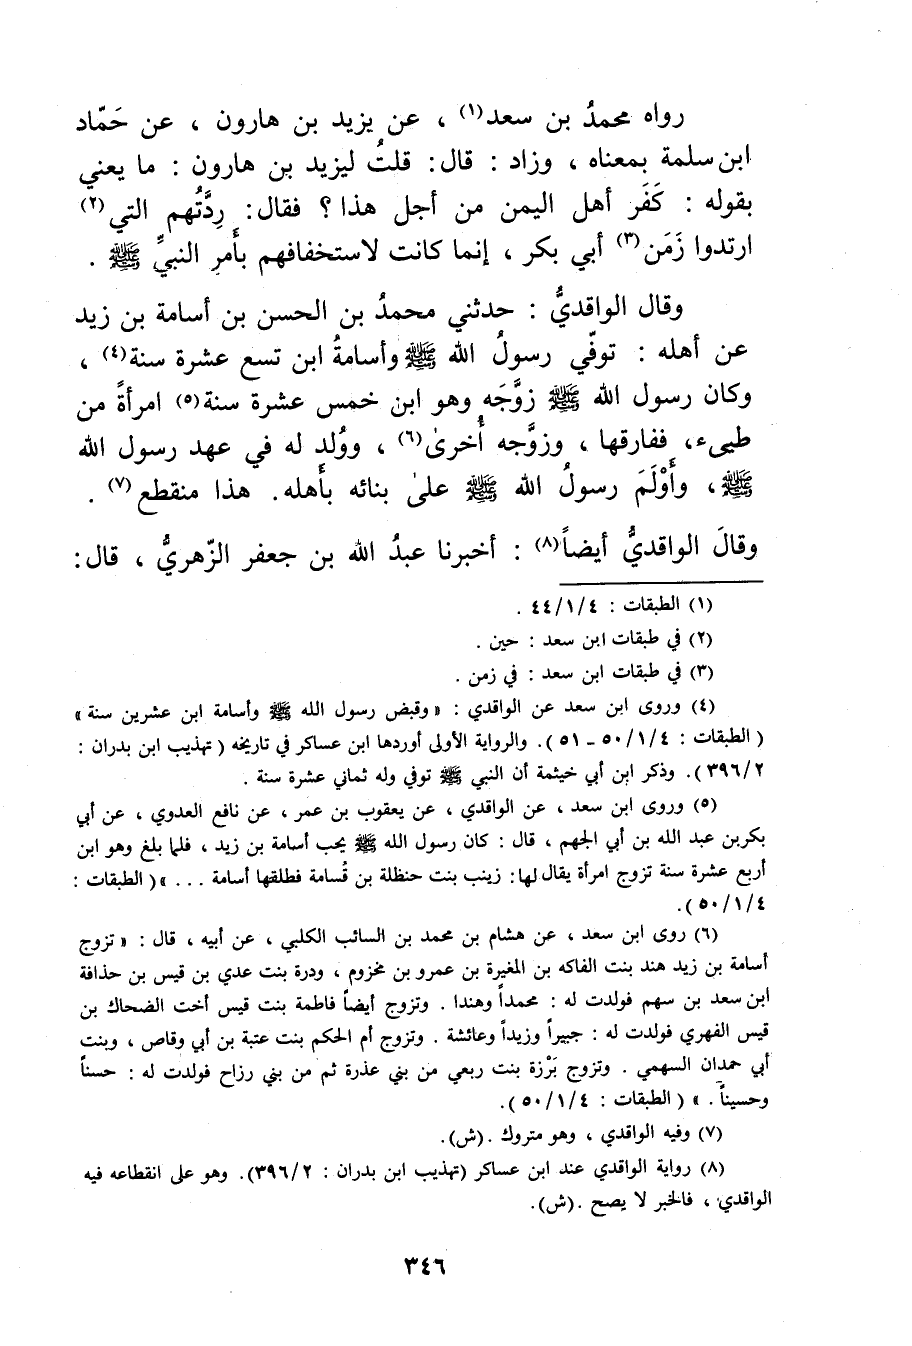 رواه محمدُ بن سعد(١) ، عن يزيد بن هارون ، عن حَمّاد
ابن سلمة بمعناه ، وزاد : قال: قلتُ ليزيد بن هارون : ما يعني
بقوله : كَفَر أهل اليمن من أجل هذا ؟ فقال: رِدَّتُهم التي(٢)
ارتدوا زَمَن(٣) أبي بكر ، إنما كانت لاستخفافهم بأَمرِ النبيِّ ﷺ .
وقال الواقديُّ : حدثني محمدُ بن الحسن بن أسامة بن زيد
عن أهله : توفّي رسولُ الله ﷺ وأسامةُ ابن تسع عشرة سنة(٤) ،
وكان رسول الله ﷺ زوَّجَه وهو ابن خمس عشرة سنة(٥) امرأةً من
طيىء، ففارقها ، وزوَّجه أُخرىٰ(٦) ، ووُلد له في عهد رسول الله
ﷺ ، وأَوْلَمَ رسولُ الله ﷺ علىٰ بنائه بأَهله. هذا منقطع(٧) .
وقالَ الواقديُّ أيضاً(٨) : أخبرنا عبدُ الله بن جعفر الزّهريُّ ، قال:
(١) الطبقات : ٤٤/١/٤ .
(٢) في طبقات ابن سعد : حين .
(٣) في طبقات ابن سعد : في زمن .
(٤) وروى ابن سعد عن الواقدي : «وقبض رسول الله ﷺ وأسامة ابن عشرين سنة»
(الطبقات : ٥٠/١/٤ ـ ٥١). والرواية الأولى أوردها ابن عساكر في تاريخه (تهذيب ابن بدران :
٣٩٦/٢). وذكر ابن أبي خيثمة أن النبي ﷺ توفي وله ثماني عشرة سنة .
(٥) وروى ابن سعد ، عن الواقدي ، عن يعقوب بن عمر ، عن نافع العدوي ، عن أبي
بكربن عبد الله بن أبي الجهم ، قال : كان رسول الله ﷺ يحب أسامة بن زيد ، فلما بلغ وهو ابن
أربع عشرة سنة تزوج امرأة يقال لها: زينب بنت حنظلة بن قُسامة فطلقها أسامة . . . »(الطبقات :
٥٠/١/٤).
(٦) روى ابن سعد ، عن هشام بن محمد بن السائب الكلبي ، عن أبيه ، قال : «تزوج
أسامة بن زيد هند بنت الفاكه بن المغيرة بن عمرو بن مخزوم ، ودرة بنت عدي بن قيس بن حذافة
ابن سعد بن سهم فولدت له : محمداً وهندا . وتزوج أيضاً فاطمة بنت قيس أخت الضحاك بن
قيس الفهري فولدت له : جبيراً وزيداً وعائشة . وتزوج أم الحكم بنت عتبة بن أبي وقاص ، وبنت
أبي حمدان السهمي . وتزوج بَرْزة بنت ربعي من بني عذرة ثم من بني رزاح فولدت له : حسناً
وحسيناً . » (الطبقات : ٥٠/١/٤).
(٧) وفيه الواقدي ، وهو متروك .(ش).
(٨) رواية الواقدي عند ابن عساكر (تهذيب ابن بدران : ٣٩٦/٢). وهو على انقطاعه فيه
الواقدي ، فالخبر لا يصح .(ش).
٣٤٦